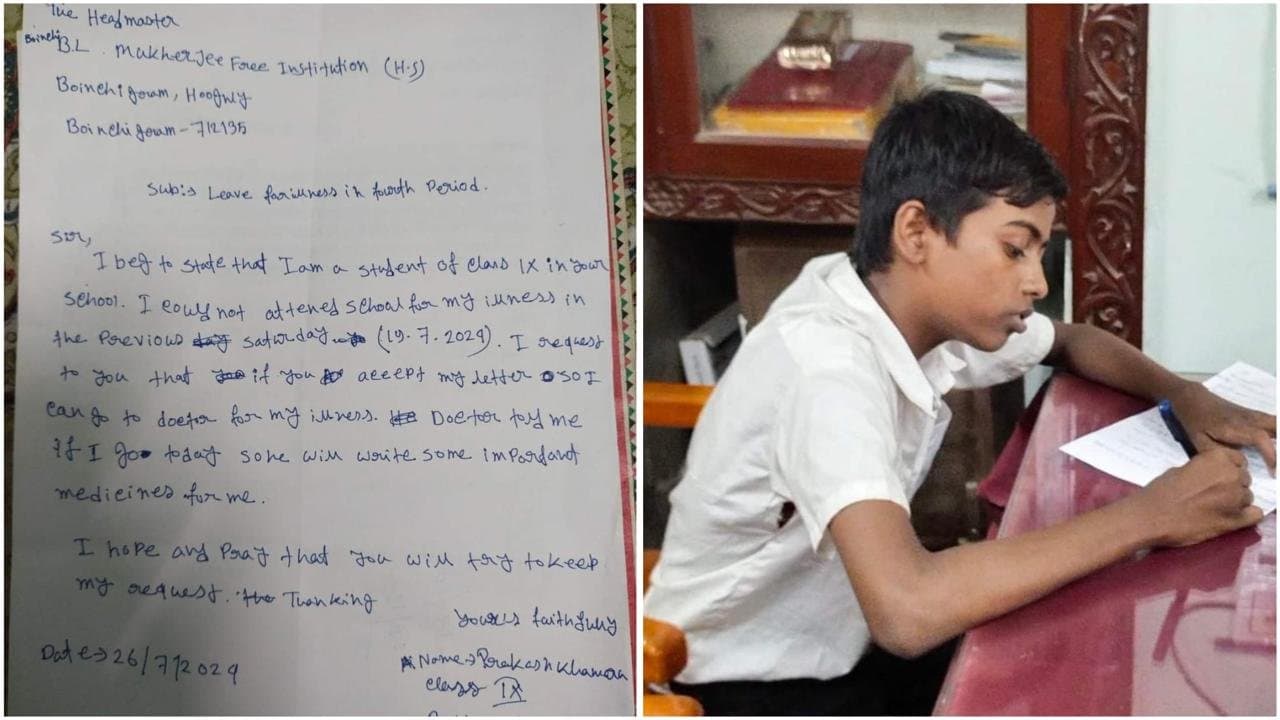 The Headmaster
Boinchi B.L. Mukherjee Free Institution (H.S)
Boinchigram, Hooghly
Boinchigram-712135
Sub:→ Leave for illness in fourth Period.
Sir,
I beg to state that I am a student of class IX in your
school. I could not attened school for my illness in
the Previous saturday (19.7.2024). I request
to you that if you accept my letter so I
can go to doctor for my illness. Doctor told me
if I go today so he will write some important
medicines for me.
I hope and Pray that you will try to keep
my request. Thanking
yours faithfully
Date→26/7/2024
Name→Prakash
class IX